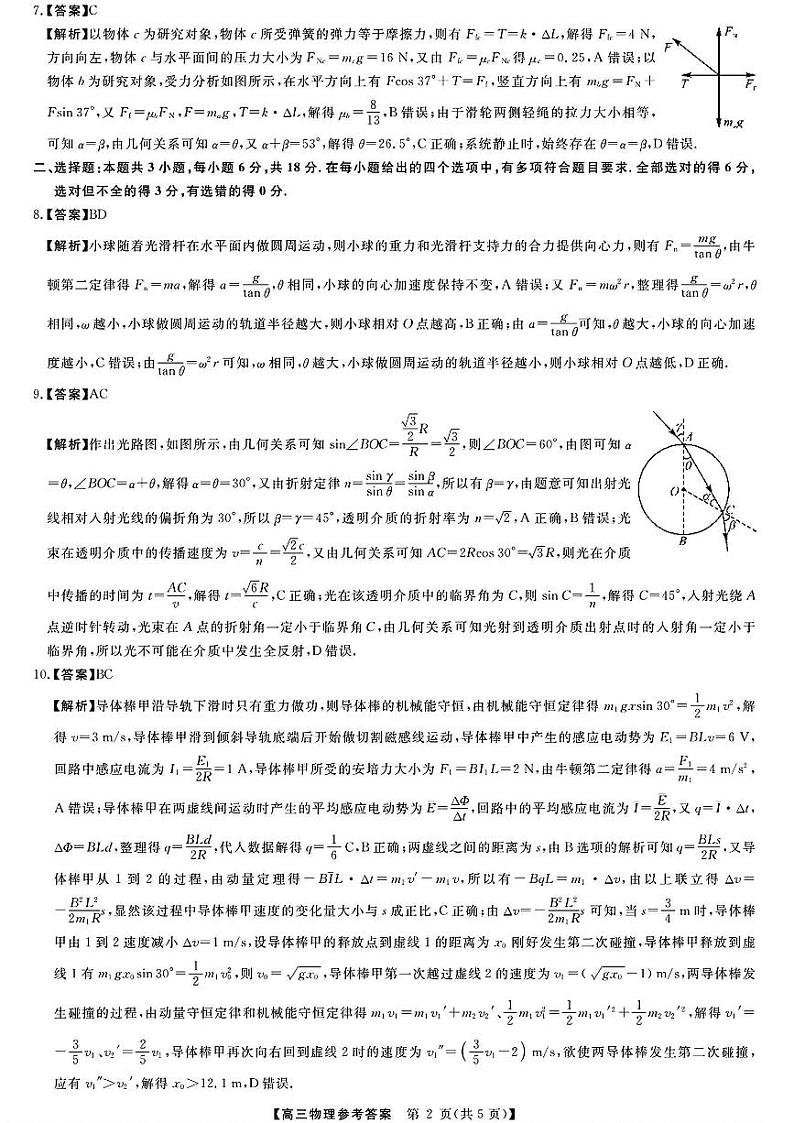 7.【答案】C
【解析】以物体 c 为研究对象,物体 c 所受弹簧的弹力等于摩擦力,则有 Ffc=T=k·ΔL,解得 Ffc=4 N,
方向向左,物体 c 与水平面间的压力大小为 FNc=mcg=16 N,又由 Ffc=μcFNc得 μc=0.25,A 错误;以
物体 b 为研究对象,受力分析如图所示,在水平方向上有 Fcos 37°+T=Ff,竖直方向上有 mbg=FN+
Fsin 37°,又 Ff=μbFN,F=mag,T=k·ΔL,解得 μb=8/13,B 错误;由于滑轮两侧轻绳的拉力大小相等,
可知 α=β,由几何关系可知 α=θ,又 α+β=53°,解得 θ=26.5°,C 正确;系统静止时,始终存在 θ=α=β,D 错误.
F
T
二、选择题:本题共 3 小题,每小题 6 分,共 18 分.在每小题给出的四个选项中,有多项符合题目要求.全部选对的得 6 分,
选对但不全的得 3 分,有选错的得 0 分.
8.【答案】BD
【解析】小球随着光滑杆在水平面内做圆周运动,则小球的重力和光滑杆支持力的合力提供向心力,则有 Fn=mg/tan θ,由牛
顿第二定律得 Fn=ma,解得 a=g/tan θ,θ 相同,小球的向心加速度保持不变,A 错误;又 Fn=mω²r,整理得g/tan θ=ω²r,θ
相同,ω 越小,小球做圆周运动的轨道半径越大,则小球相对 O 点越高,B 正确;由 a=g/tan θ可知,θ 越大,小球的向心加速
度越小,C 错误;由g/tan θ=ω²r 可知,ω 相同,θ 越大,小球做圆周运动的轨道半径越小,则小球相对 O 点越低,D 正确.
9.【答案】AC
【解析】作出光路图,如图所示,由几何关系可知 sin∠BOC=(√3/2 R)/R=√3/2,则∠BOC=60°,由图可知 α
=θ,∠BOC=α+θ,解得 α=θ=30°,又由折射定律 n=sin γ/sin θ=sin β/sin α,所以有 β=γ,由题意可知出射光
线相对入射光线的偏折角为 30°,所以 β=γ=45°,透明介质的折射率为 n=√2,A 正确,B 错误;光
束在透明介质中的传播速度为 v=c/n=√2c/2,又由几何关系可知 AC=2Rcos 30°=√3R,则光在介质
中传播的时间为 t=AC/v,解得 t=√6R/c,C 正确;光在该透明介质中的临界角为 C,则 sin C=1/n,解得 C=45°,入射光绕 A
点逆时针转动,光束在 A 点的折射角一定小于临界角 C,由几何关系可知光射到透明介质出射点时的入射角一定小于
临界角,所以光不可能在介质中发生全反射,D 错误.
γ
A
θ
O
α
C
β
B
10.【答案】BC
【解析】导体棒甲沿导轨下滑时只有重力做功,则导体棒的机械能守恒,由机械能守恒定律得 m1gxsin 30°=1/2 m1v²,解
得 v=3 m/s,导体棒甲滑到倾斜导轨底端后开始做切割磁感线运动,导体棒甲中产生的感应电动势为 E1=BLv=6 V,
回路中感应电流为 I1=E1/2R=1 A,导体棒甲所受的安培力大小为 F1=BI1L=2 N,由牛顿第二定律得 a=F1/m1=4 m/s²,
A 错误;导体棒甲在两虚线间运动时产生的平均感应电动势为 E̅=ΔΦ/Δt,回路中的平均感应电流为 I̅=E̅/2R,又 q=I̅·Δt,
ΔΦ=BLd,整理得 q=BLd/2R,代入数据解得 q=1/6 C,B 正确;两虚线之间的距离为 s,由 B 选项的解析可知 q=BLs/2R,又导
体棒甲从 1 到 2 的过程,由动量定理得-BI̅L·Δt=m1v′-m1v,所以有-BqL=m1·Δv,由以上联立得 Δv=
-B²L²/2m1R s,显然该过程中导体棒甲速度的变化量大小与 s 成正比,C 正确;由 Δv=-B²L²/2m1R s 可知,当 s=3/4 m 时,导体棒
甲由 1 到 2 速度减小 Δv=1 m/s,设导体棒甲的释放点到虚线 1 的距离为 x0 刚好发生第二次碰撞,导体棒甲释放到虚
线 1 有 m1gx0sin 30°=1/2 m1v0²,则 v0=√gx0,导体棒甲第一次越过虚线 2 的速度为 v1=(√gx0-1) m/s,两导体棒发
生碰撞的过程,由动量守恒定律和机械能守恒定律得 m1v1=m1v1′+m2v2′、1/2 m1v1²=1/2 m1v1′²+1/2 m2v2′²,解得 v1′=
-3/5 v1、v2′=2/5 v1,导体棒甲再次向右回到虚线 2 时的速度为 v1″=(3/5 v1-2) m/s,欲使两导体棒发生第二次碰撞,
应有 v1″>v2′,解得 x0>12.1 m,D 错误.
【高三物理参考答案 第 2 页(共 5 页)】